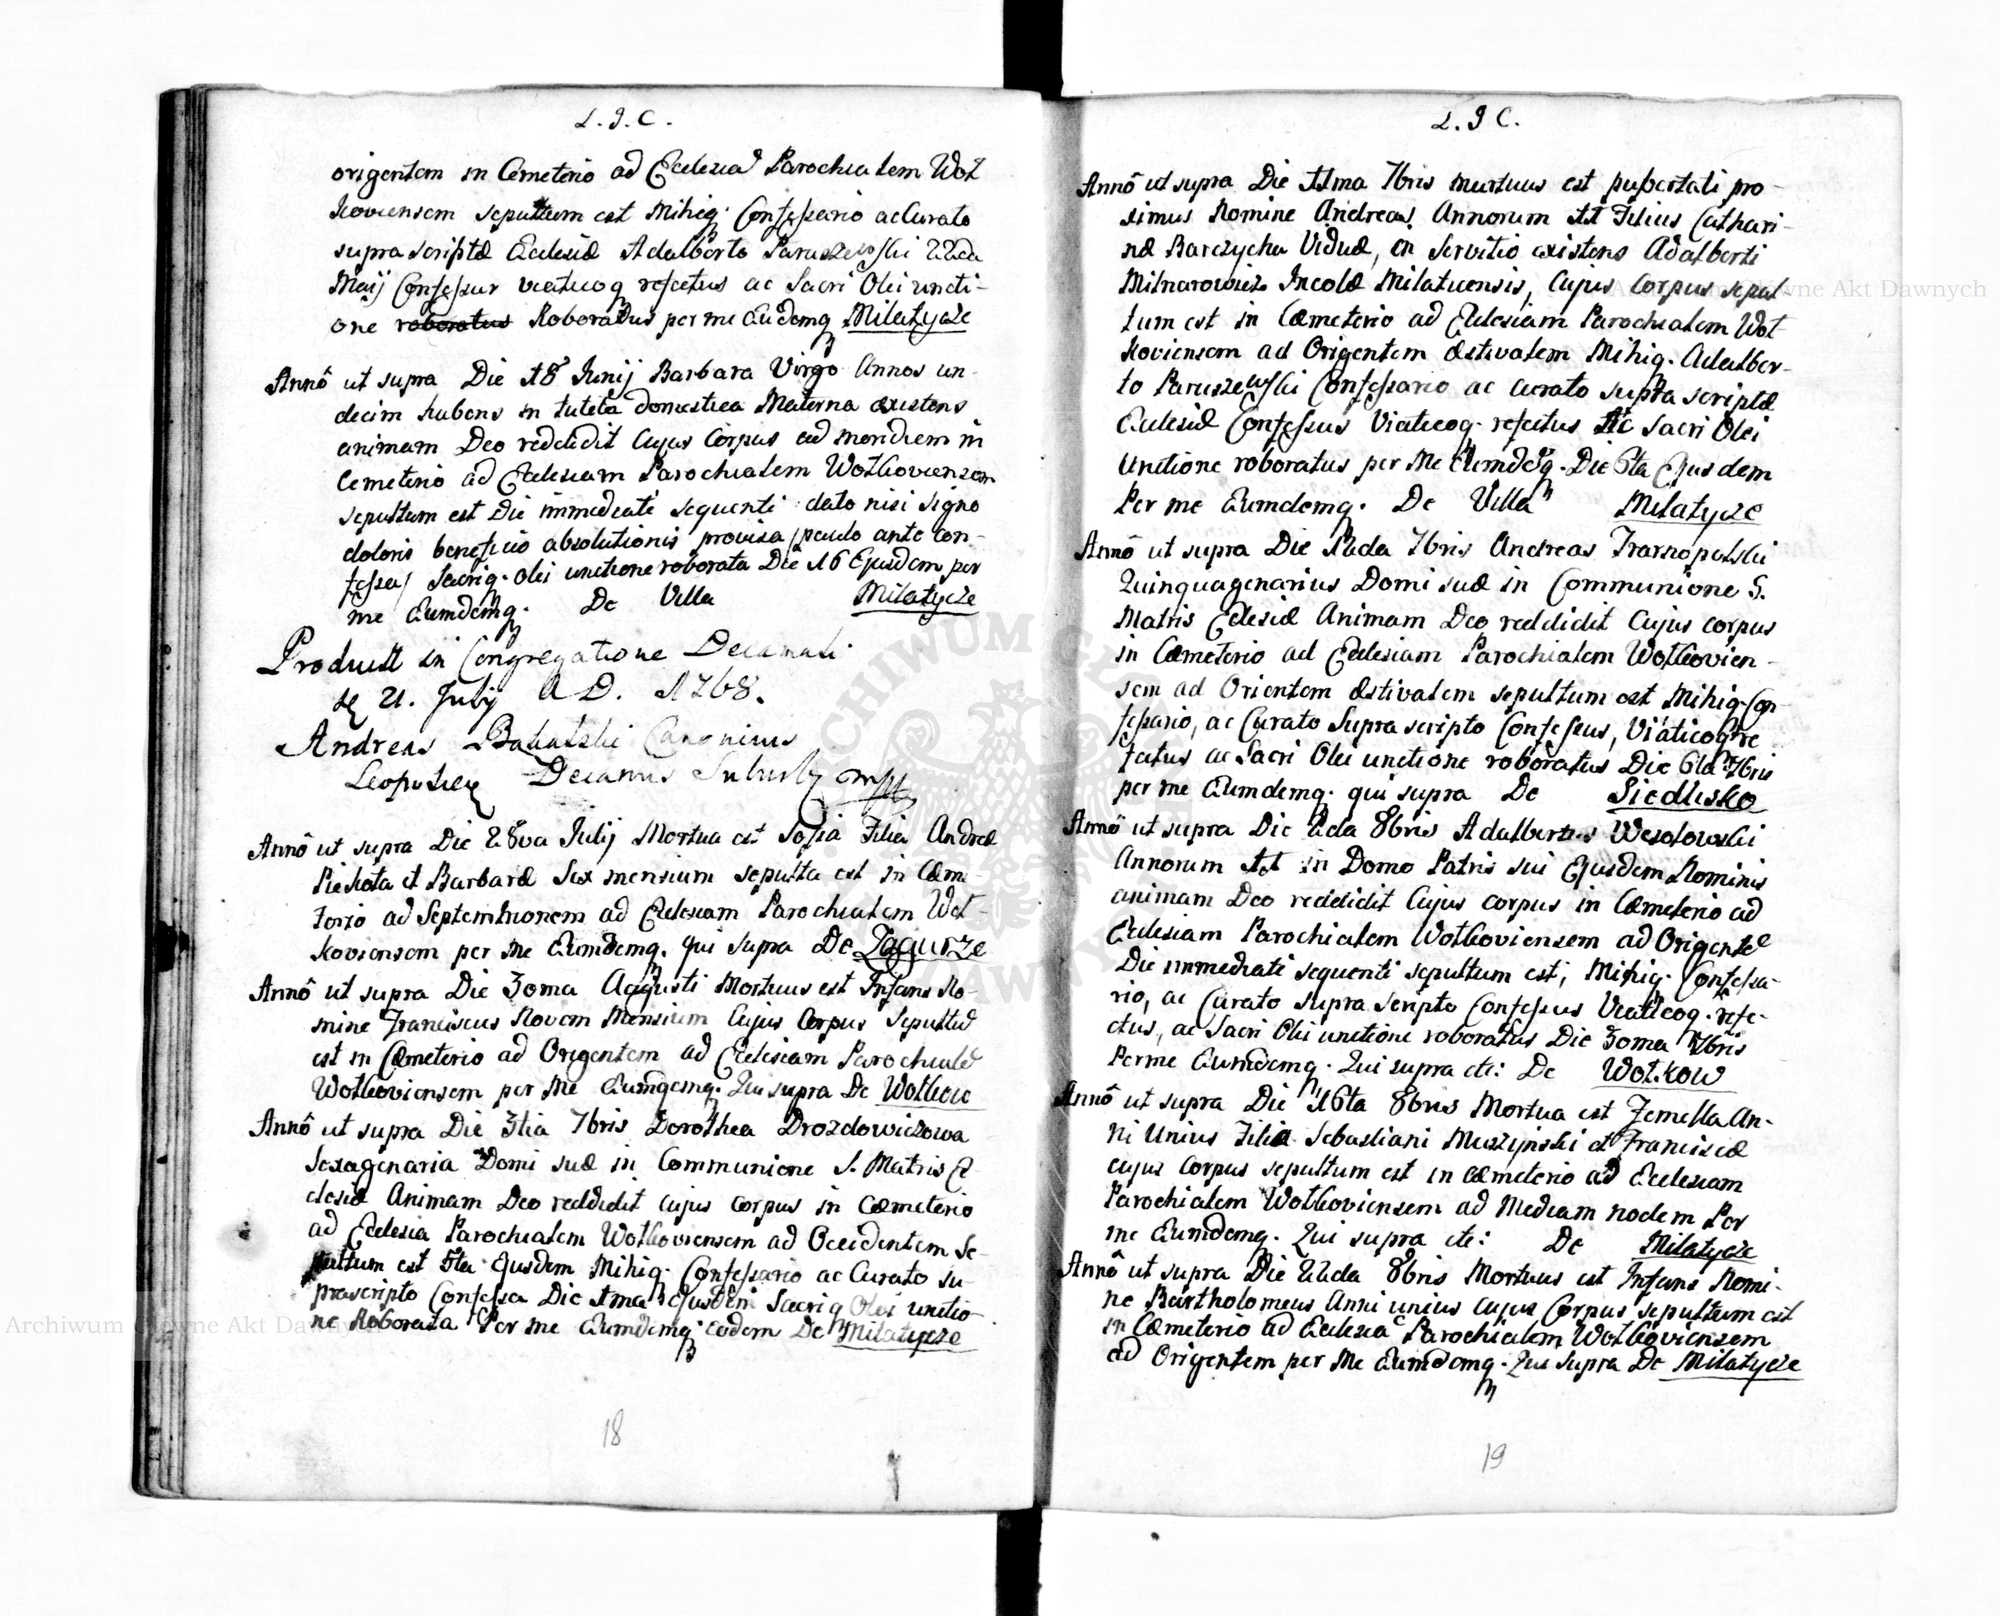 L. J. C.
origentem in Cemeterio ad Ecclesia Parochialem Woł
koviensem sepultum est Mihiq. Confessario ac Curato
supra scriptæ Ecclesiæ Adalberto Paruszewski 22da
Maij Confessus viaticoq refectus ac Sacri Olei uncti-
one roboratus Roboratus per me Eumdemq Milatycze
Annô ut supra Die 18 Junij Barbara Virgo Annos un-
decim habens in tutela domestica Materna existens
animam Deo reddidit Cujus Corpus ad meridiem in
Cemeterio ad Ecclesiam Parochialem Wołkoviensem
sepultum est Die immediatê sequenti dato nisi signo
doloris beneficio absolutionis provisa /paulo ante con-
fessa/ Sacriq. Olei unctione roborata Die 16 Ejusdem per
me Eumdemq. De Villa Milatycze
Product in Congregatione Decanali
21. Julij A D. 1768.
Andreas Canonicus
Decanus
Annô ut supra Die 28va Julij Mortua est Sofia Filia Andreæ
Piekota et Barbaræ Sex mensium sepulta est in Cæme
terio ad Septemtrionem ad Ecclesiam Parochialem Woł-
koviensem per Me Eumdemq. qui supra De Zagurze
Annô ut supra Die 3oma Augusti Mortuus est Infans No-
mine Franciscus Novem Mensium Cujus Corpus Sepultũ
est in Cæmeterio ad Origentem ad Ecclesiam Parochialē
Wołkoviensem per Me Eumdemq. Qui supra De Wołkow
Annô ut supra Die 3tia 7bris Dorothea Drozdowiczowa
Sexagenaria Domi suæ in Communione S. Matris Ec-
clesiæ Animam Deo reddidit Cujus Corpus in Cæmeterio
ad Ecclesia Parochialem Wołkoviensem ad Occidentem Se-
pultum est 5ta Ejusdem Mihiq. Confessario ac Curato su-
prascripto Confessa Die 1ma Ejusdem Sacriq Olei unctio-
ne Roborata Per me Eumdemq eodem De Milatycze
18
L. J C.
Annô ut supra Die 11ma 7bris mortuus est pubertati pro-
ximus Nomine Andreas Annorum 11 Filius Cathari-
næ Barczycha Viduæ, in Servitio existens Adalberti
Milnarowicz Incolæ Milaticensis, Cujus Corpus sepul
tum est in Cæmeterio ad Ecclesiam Parochialem Woł-
koviensem ad Origentem Æstivalem Mihiq. Adalber-
to Paruszewski Confessario ac Curato supra scriptæ
Ecclesiæ Confessus Viaticoq. refectus Ac Sacri Olei
Unctione roboratus per Me Eumdemq. Die 6ta Ejusdem
Per me Eumdemq. De Villa Milatycze
Annô ut supra Die 22da 7bris Andreas Tarnopolski
Quinquagenarius Domi suæ in Communione S.
Matris Eclesiæ Animam Deo reddidit Cujus corpus
in Cæmeterio ad Ecclesiam Parochialem Wołkovien-
sem ad Orientem Æstivalem sepultum est Mihiq. Con-
fessario, ac Curato Supra scripto Confessus, Viaticoq re
fectus ac Sacri Olei unctione roboratus Die 6ta 7bris
per me Eumdemq. qui supra De Siedlisko
Annô ut supra Die 2da 8bris Adalbertus Wesołowski
Annorum 11 in Domo Patris sui Ejusdem Nominis
animam Deo reddidit Cujus corpus in Cæmeterio ad
Ecclesiam Parochialem Wołkoviensem ad Origentē
Die immediatê sequenti sepultum est, Mihiq. Confessa-
rio, ac Curato supra scripto Confessus Viaticoq. refe-
ctus, ac Sacri Olei unctione roboratus Die 3oma 7bris
Per me Eumdemq. Qui supra etc: De Wołkow
Annô ut supra Die 16ta 8bris Mortua est Femella An-
ni Unius Filia Sebastiani Muszynski et Franciscæ
cujus Corpus sepultum est in Cæmeterio ad Ecclesiam
Parochialem Wołkoviensem ad Mediam noctem Per
me Eumdemq. Qui supra etc: De Milatycze
Annô ut supra Die 22da 8bris Mortuus est Infans Nomi-
ne Bartholomeus Anni unius cujus Corpus sepultum est
in Cæmeterio ad Ecclesia Parochialem Wołkoviensem
ad Origentem per Me Eumdemq. Qui supra De Milatycze
19
Archiwum Główne Akt Dawnych
Archiwum Główne Akt Dawnych
ARCHIWUM GŁÓWNE AKT DAWNYCH